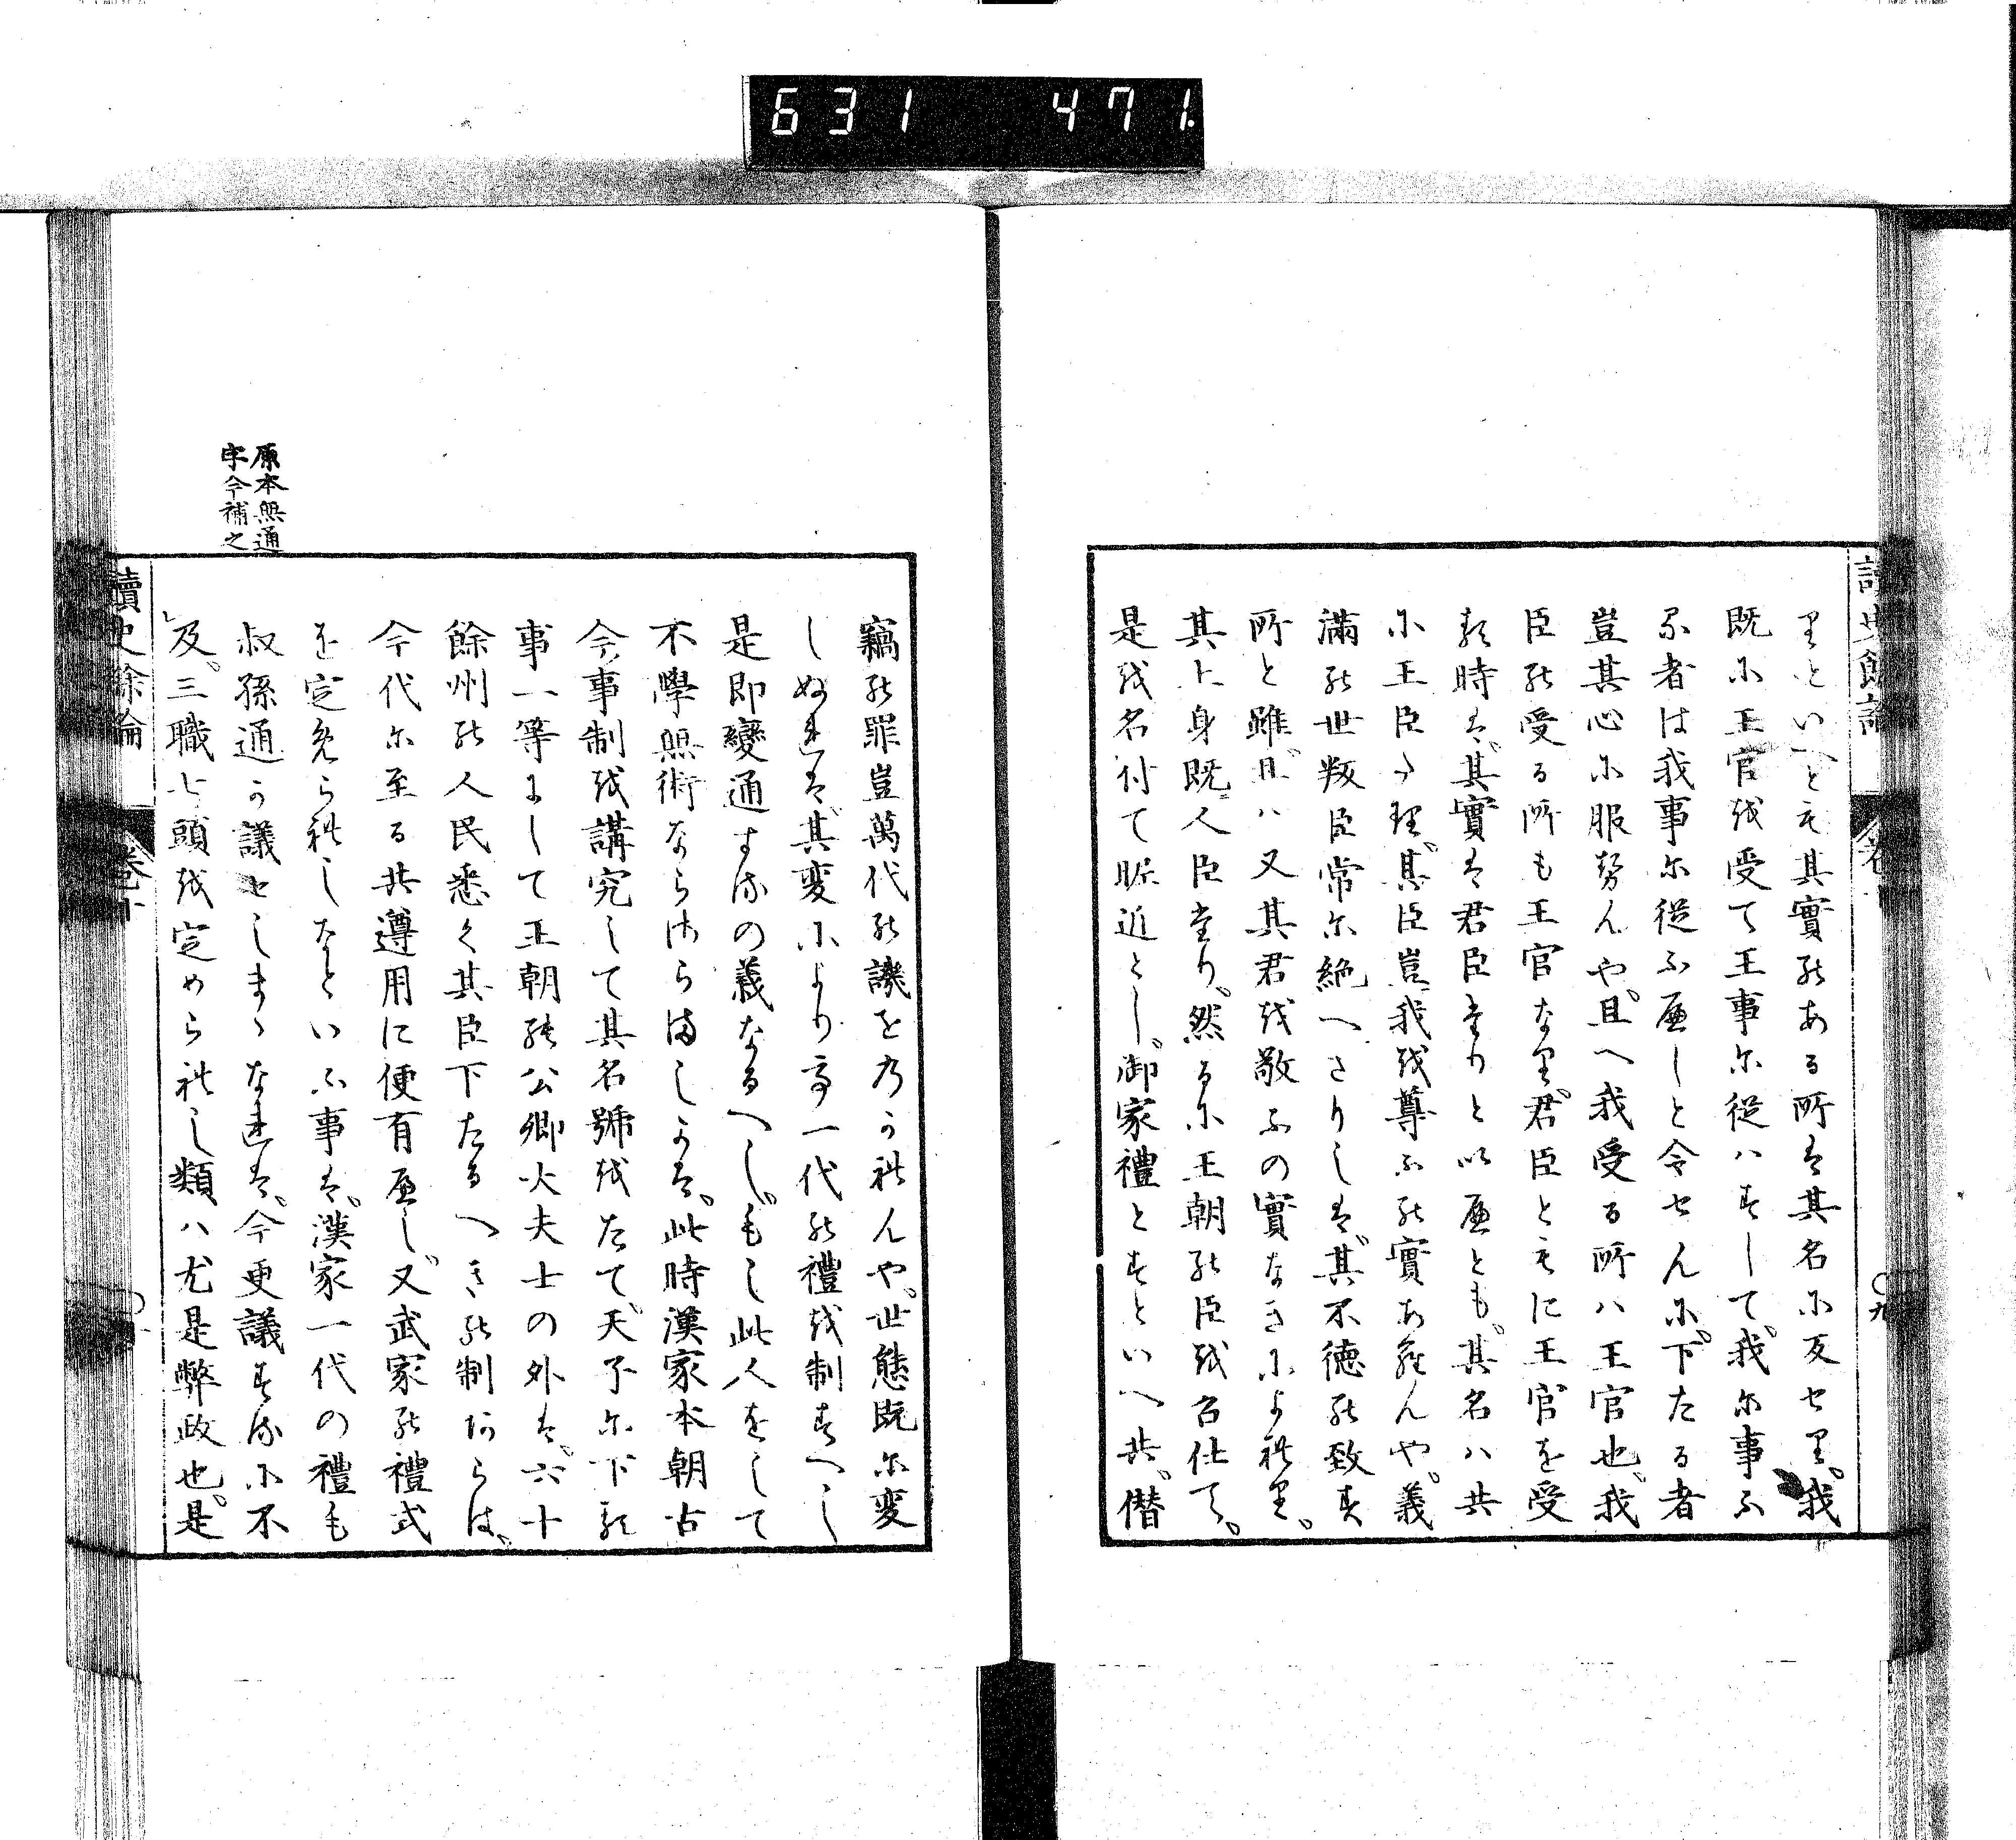 631 471.
讀史餘論
巻
〇九
りといへとも其實のある所は其名に反せり、我
既に王官を受て王事に従はすして、我に事ふ
る者は我事に従ふへしと令せんに、下たる者
豈其心に服勢んや、且へ我受る所ハ王官也、我
臣の受る所も王官なり、君臣ともに王官を受
る時は、其實は君臣たりと以へとも、其名ハ共
に王臣なり、其臣豈我を尊ふの實あらんや、義
滿の世叛臣常に絶へさりしは、其不徳の致す
所と雖、且ハ又其君を敬ふの實なきによれり。
其上身既人臣たり、然るに王朝の臣を召仕て。
是を名付て昵近とし、御家禮とすといへ共、僭
竊の罪豈萬代の譏をのかれんや、世態既に変
しぬれは、其変により弖一代の禮を制すへし
是即變通するの義なるへし、もし此人をして
不學無術ならさらましかは、此時漢家本朝古
今事制を講究して其名號をたて、天子に下る
事一等にして王朝の公卿大夫士の外は、六十
餘州の人民悉く其臣下たるへきの制あらは、
今代に至る共遵用に便有へし、又武家の禮式
を定められしなといふ事は、漢家一代の禮も
叔孫通か議せしまゝなれは、今更議するに不
及、三職七頭を定められし類ハ尤是弊政也、是
原本無通
字今補之
讀史餘論
巻十